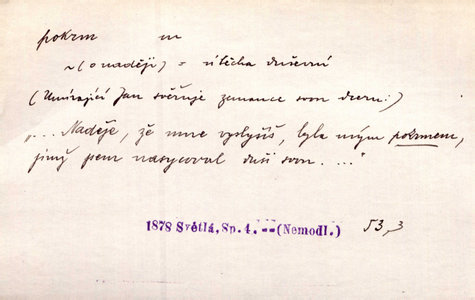 pokrm m
~ (o naději) = útěcha duševní
(Umírající Jan svěřuje zemance svou dceru:)
„... Naděje, že mne vyslyšíš, byla mým pokrmem,
jímž jsem nasycoval duši svou. ..."
1878 Světlá, Sp. 4. -- (Nemodl.) 53,3